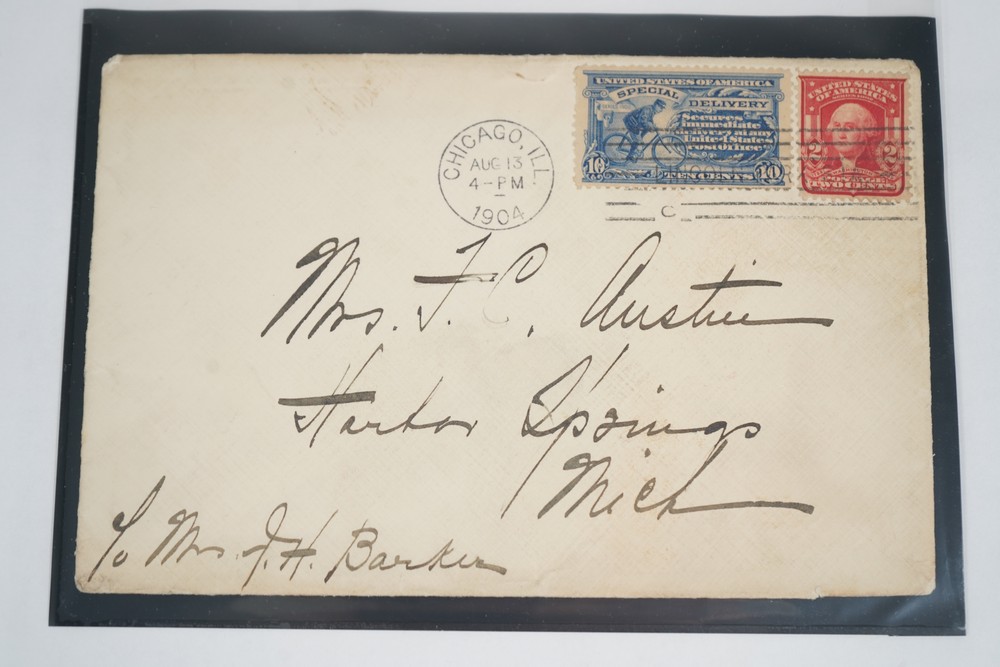 CHICAGO, ILL.
AUG 13
4-PM
1904
UNITED STATES OF AMERICA
SPECIAL DELIVERY
Secures
immediate
delivery at any
United States
post office
10 TEN CENTS 10
UNITED STATES
OF AMERICA
2 2
TWO CENTS
C
Mrs. F. C. Austin
Harbor Springs
Mich
Mrs. J. H. Barker